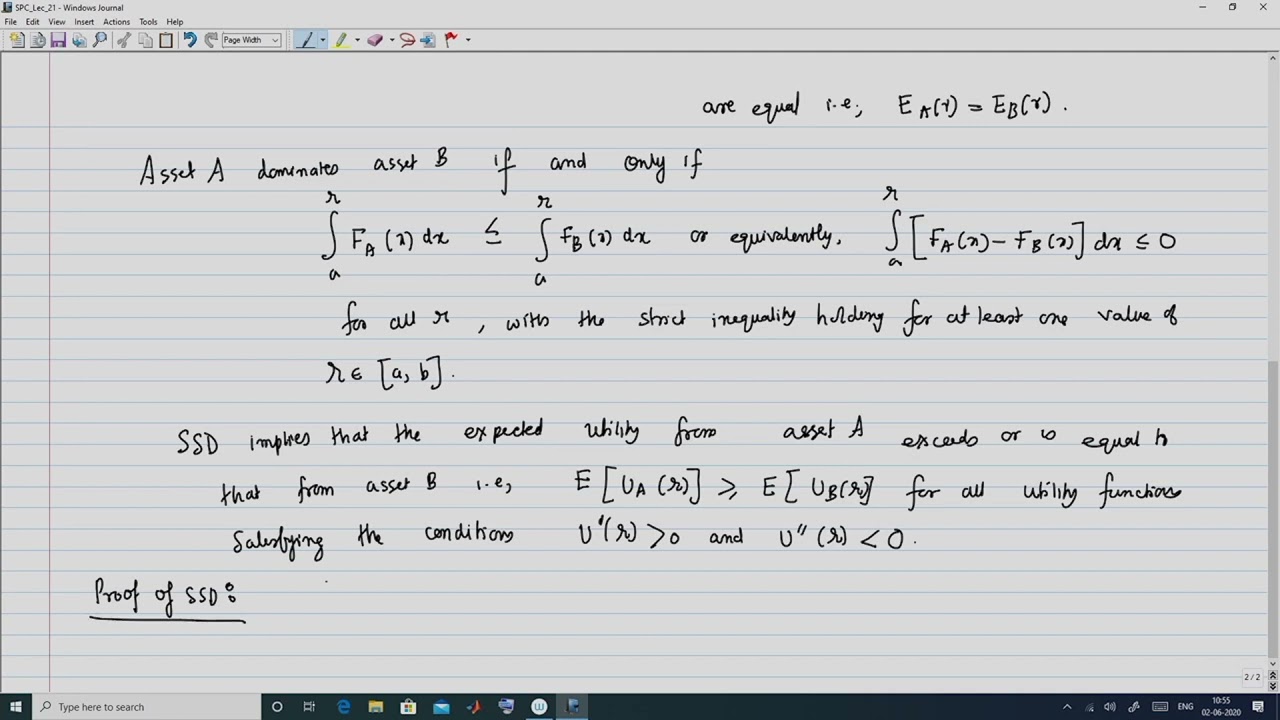 SPC_Lec_21 - Windows Journal
File Edit View Insert Actions Tools Help
Page Width
are equal i.e; E_A(r) = E_B(r).
Asset A dominates asset B if and only if
∫_a^r F_A(x) dx ≤ ∫_a^r F_B(x) dx or equivalently, ∫_a^r [F_A(x) - F_B(x)] dx ≤ 0
for all r, with the strict inequality holding for at least one value of
r ∈ [a, b].
SSD implies that the expected utility from asset A exceeds or is equal to
that from asset B i.e, E[U_A(r)] ≥ E[U_B(r)] for all utility functions
Satisfying the conditions U'(r) > 0 and U''(r) < 0.
Proof of SSD:
2 / 2
Type here to search
ENG
10:55
02-06-2020